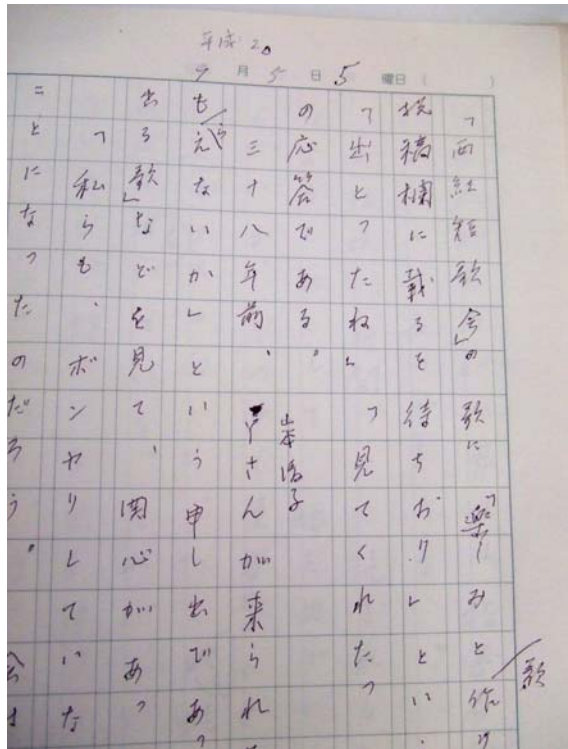 平成20
9月5日5曜日( )
歌
「西紅短歌会」の歌に「楽しみと作り
投稿欄に載るを待ちおりしとい
「出とったね」「見てくれたっ
の応答である。
三十八年前、Yさんが来られ
もらえないか」という申し出であ
出る歌」などを見て、関心があっ
「私らも、ボンヤリしていな
ことになったのだろう。